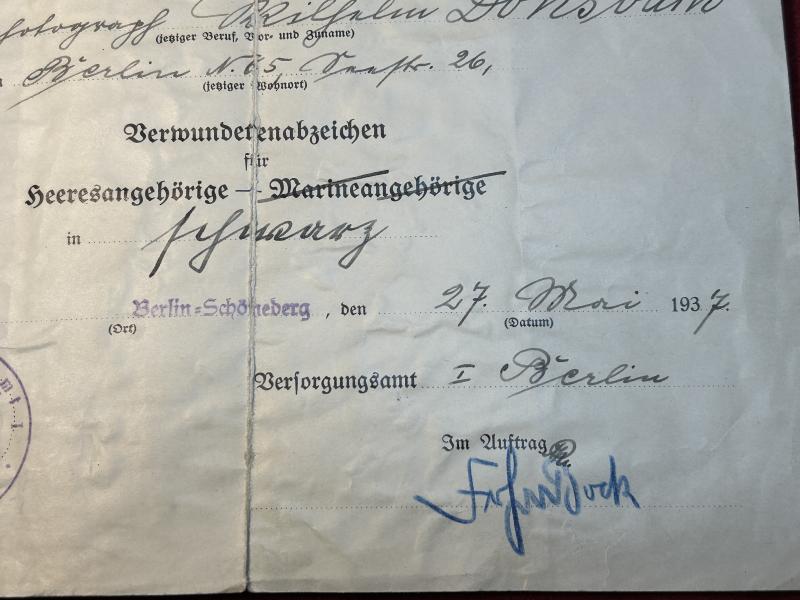 Photograph Wilhelm Donsbach
(jetziger Beruf, Vor- und Zuname)
Berlin N. 65, Seestr. 26,
(jetziger Wohnort)
Verwundetenabzeichen
für
Heeresangehörige — Marineangehörige
in schwarz
Berlin-Schöneberg, den 27. Mai 1937.
(Ort) (Datum)
Versorgungsamt I Berlin
Im Auftrag